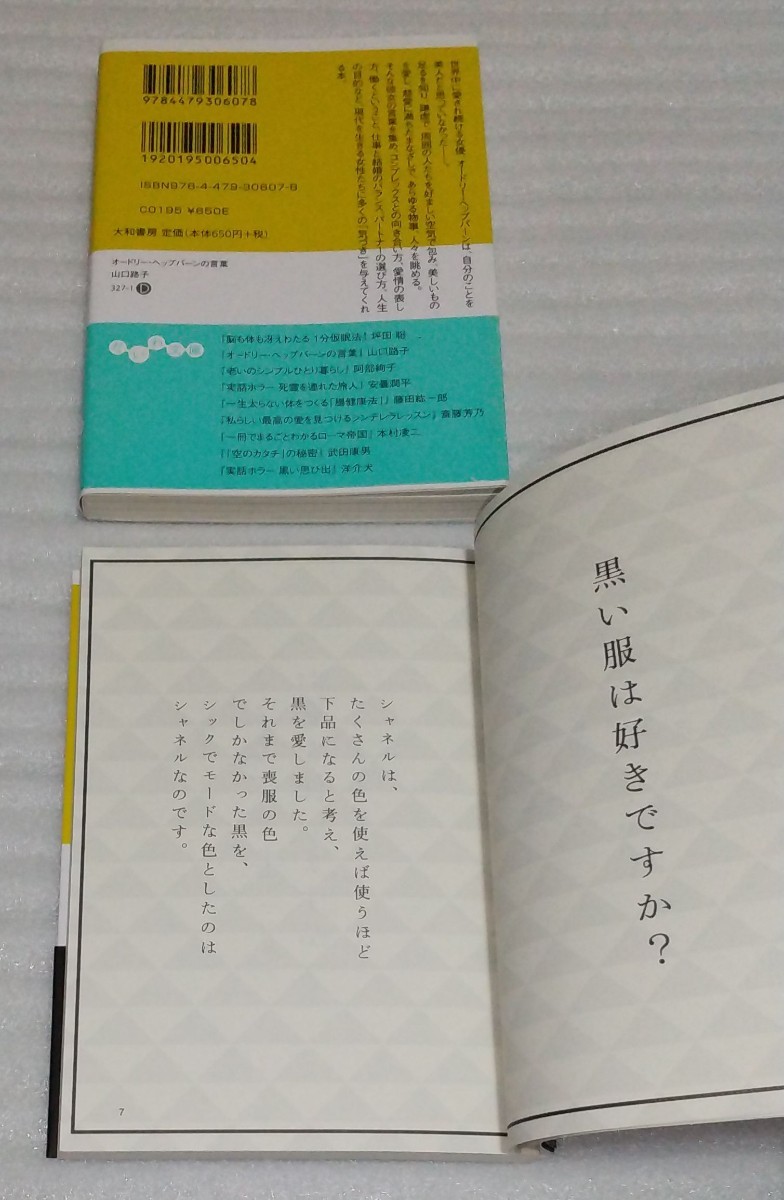 9784479306078
1920195006504
ISBN978-4-479-30607-8
C0195 ¥650E
大和書房 定価(本体650円+税)
世界中に愛され続ける女優、オードリー・ヘップバーンは、自分のことを
美人だと思っていなかった――。
足るを知り、謙虚で、周囲の人たちを好ましい空気で包み、美しいもの
を愛し、慈愛に満ちたまなざしで、あらゆる物事、人々を眺める。
そんな彼女の言葉を集め、コンプレックスとの向き合い方、愛情の表し
方、働くということ、仕事と結婚のバランス、パートナーの選び方、人生
の目的など、現代を生きる女性たちに多くの「気づき」を与えてくれ
る本。
オードリー・ヘップバーンの言葉
山口路子
327-1 D
だいわ文庫
「脳も体も冴えわたる 1分仮眠法」坪田 聡
「オードリー・ヘップバーンの言葉」山口路子
「老いのシンプルひとり暮らし」阿部絢子
「実話ホラー 死霊を連れた旅人」安曇潤平
「一生太らない体をつくる「腸健康法」」藤田紘一郎
「私らしい最高の愛を見つけるシンデレラレッスン」斎藤芳乃
「一冊でまるごとわかるローマ帝国」本村凌二
「「空のカタチ」の秘密」武田康男
「実話ホラー 黒い思ひ出」洋介犬
黒い服は好きですか?
シャネルは、
たくさんの色を使えば使うほど
下品になると考え、
黒を愛しました。
それまで喪服の色
でしかなかった黒を、
シックでモードな色としたのは
シャネルなのです。
7